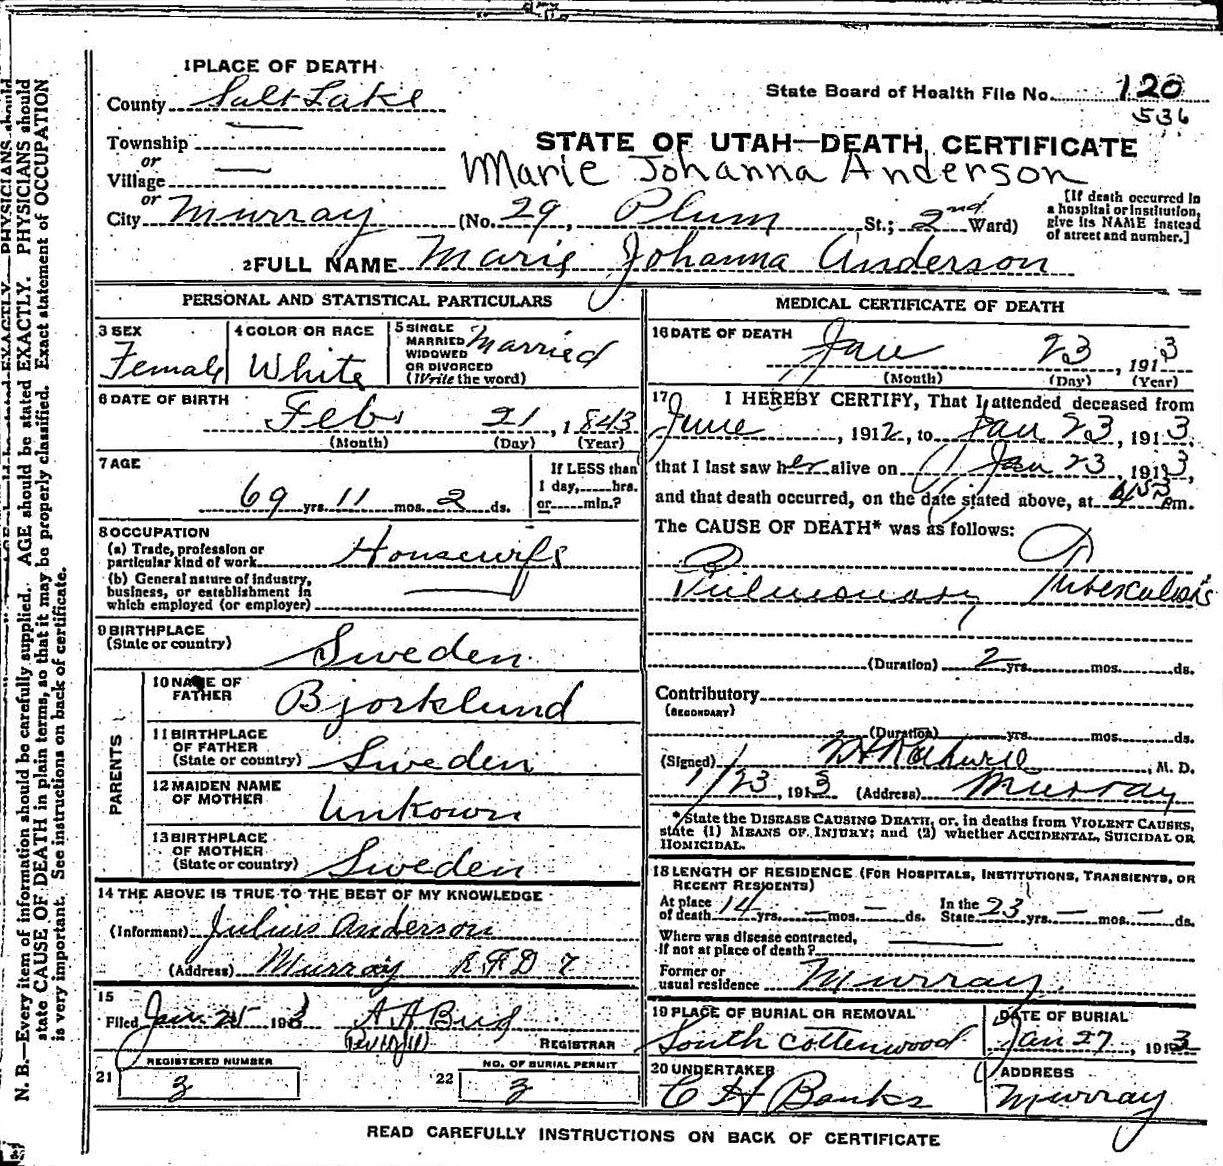 1 PLACE OF DEATH
County Salt Lake
State Board of Health File No. 120
536
Township —
or
Village —
or
STATE OF UTAH—DEATH CERTIFICATE
Marie Johanna Anderson
City Murray (No. 29, Plum St.; 2nd Ward)
[If death occurred in
a hospital or institution,
give its NAME instead
of street and number.]
2 FULL NAME Marie Johanna Anderson
PERSONAL AND STATISTICAL PARTICULARS
3 SEX
Female
4 COLOR OR RACE
White
5 SINGLE
MARRIED
WIDOWED
OR DIVORCED
(Write the word)
Married
6 DATE OF BIRTH
Feb 21, 1843
(Month) (Day) (Year)
7 AGE
69 yrs. 11 mos. 2 ds.
If LESS than
1 day, hrs.
or min.?
8 OCCUPATION
(a) Trade, profession or
particular kind of work Housewife
(b) General nature of industry,
business, or establishment in
which employed (or employer) —
9 BIRTHPLACE
(State or country) Sweden
PARENTS
10 NAME OF
FATHER Bjorklund
11 BIRTHPLACE
OF FATHER
(State or country) Sweden
12 MAIDEN NAME
OF MOTHER Unkown
13 BIRTHPLACE
OF MOTHER
(State or country) Sweden
14 THE ABOVE IS TRUE TO THE BEST OF MY KNOWLEDGE
(Informant) Julius Anderson
(Address) Murray R.F.D 7
15
Filed Jan. 25 1913
REGISTRAR
REGISTERED NUMBER
21 3
NO. OF BURIAL PERMIT
22 3
MEDICAL CERTIFICATE OF DEATH
16 DATE OF DEATH
Jan 23, 1913
(Month) (Day) (Year)
17 I HEREBY CERTIFY, That I attended deceased from
June, 1912, to Jan 23, 1913.
that I last saw her alive on Jan 23, 1913,
and that death occurred, on the date stated above, at pm.
The CAUSE OF DEATH* was as follows:
Pulmonary Tuberculosis
(Duration) 2 yrs. mos. ds.
Contributory
(SECONDARY)
(Duration) yrs. mos. ds.
(Signed) M. D.
1/23, 1913 (Address) Murray
*State the DISEASE CAUSING DEATH, or, in deaths from VIOLENT CAUSES,
state (1) MEANS OF INJURY; and (2) whether ACCIDENTAL, SUICIDAL OR
HOMICIDAL.
18 LENGTH OF RESIDENCE (FOR HOSPITALS, INSTITUTIONS, TRANSIENTS, OR
RECENT RESIDENTS)
At place
of death 14 yrs. — mos. — ds.
In the
State 23 yrs. — mos. — ds.
Where was disease contracted,
if not at place of death? —
Former or
usual residence Murray
19 PLACE OF BURIAL OR REMOVAL
South Cottenwood
DATE OF BURIAL
Jan 27, 1913
20 UNDERTAKER
C H Banks
ADDRESS
Murray
READ CAREFULLY INSTRUCTIONS ON BACK OF CERTIFICATE
N. B.—Every item of information should be carefully supplied. AGE should be stated EXACTLY. PHYSICIANS should
state CAUSE OF DEATH in plain terms, so that it may be properly classified. Exact statement of OCCUPATION
is very important. See instructions on back of certificate.